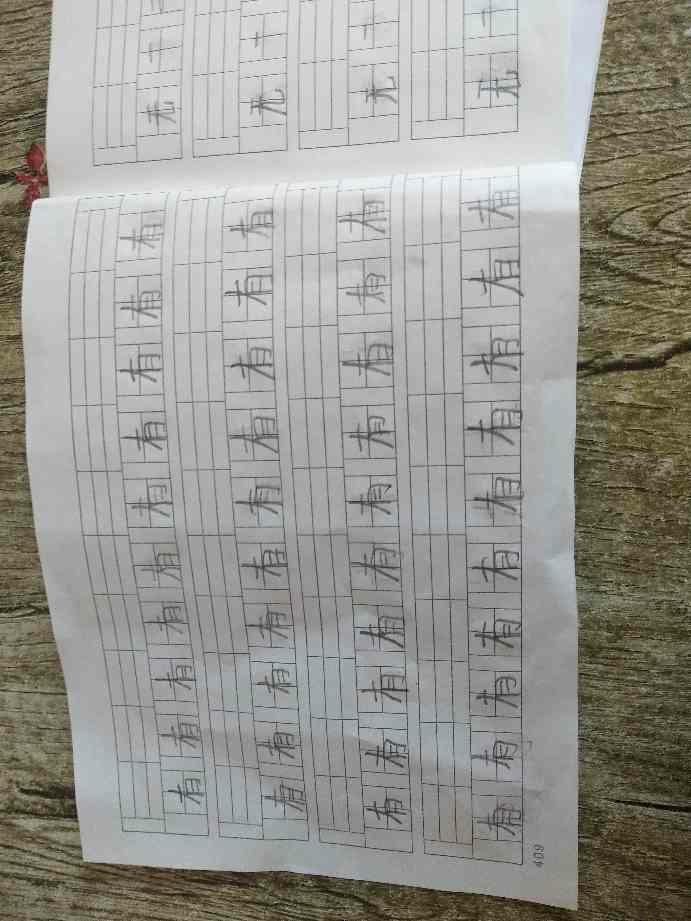 无 无 无 无
有 有 有 有
有 有 有 有
有 有 有 有
有 有 有 有
有 有 有 有
有 有 有 有
有 有 有 有
有 有 有 有
有 有 有 有
有 有 有 有
409